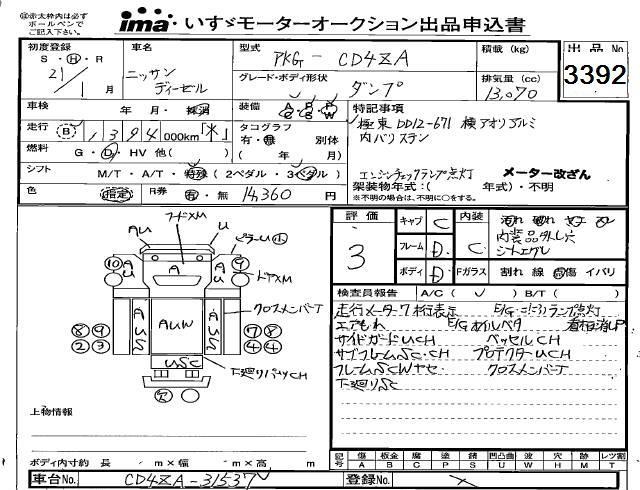 ◎赤太枠内は必ず
ボールペンで
ご記入下さい。
ima いすゞモーターオークション出品申込書
初度登録
S・H・R
21年 1月
車名
ニッサン
ディーゼル
型式
PKG - CD4ZA
グレード・ボディ形状
ダンプ
積載 (kg)
排気量 (cc)
13,070
出品No
3392
車検 年 月・抹消
装備 A P P C S W
走行 (B) 1,394 000km「*」
タコグラフ
有・無 別体
( 年 月)
燃料 G・D・HV 他( )
特記事項
極東 DD12-671 横アオリゴルミ
内バリステン
エンジンチェックランプ点灯 メーター改ざん
架装物年式:( 年式)・不明
※不明の場合は、不明に○をする。
シフト M/T・A/T・特殊 (2ペダル・3ペダル)
色 指定 R券 有・無 14,360 円
評価
3
キャブ C 内装
フレーム D C
ボディ D Fガラス 割れ 線 傷 イバリ
汚れ 破れ
内装品外し穴
シートエグレ
検査員報告 A/C ( ) B/T ( )
走行メーター7桁表示 E/Gチェックランプ点灯
エアもれ E/Gオイルベタ
サイドガードUCH ベッセルCH
サブフレームSC・CH プロテクターUCH
フレームSCWヤセ クロスメンバーT
下廻りSC
フードXM
AU U
ピラーU小
⑩ A ⑨
AU U
ドアXM
クロスメンバーT
AUS AUW AUS
⑧⑨ ⑦⑧
②③ ④④
USC
下廻りパツCH
上物情報
ボディ内寸約 長 m×幅 m×高 m
記号 傷A 板金B 腐C 塗P 錆S 凹凸曲U 波W 穴H 跡M レツ割T
車台No. CD4ZA-31537
登録No.